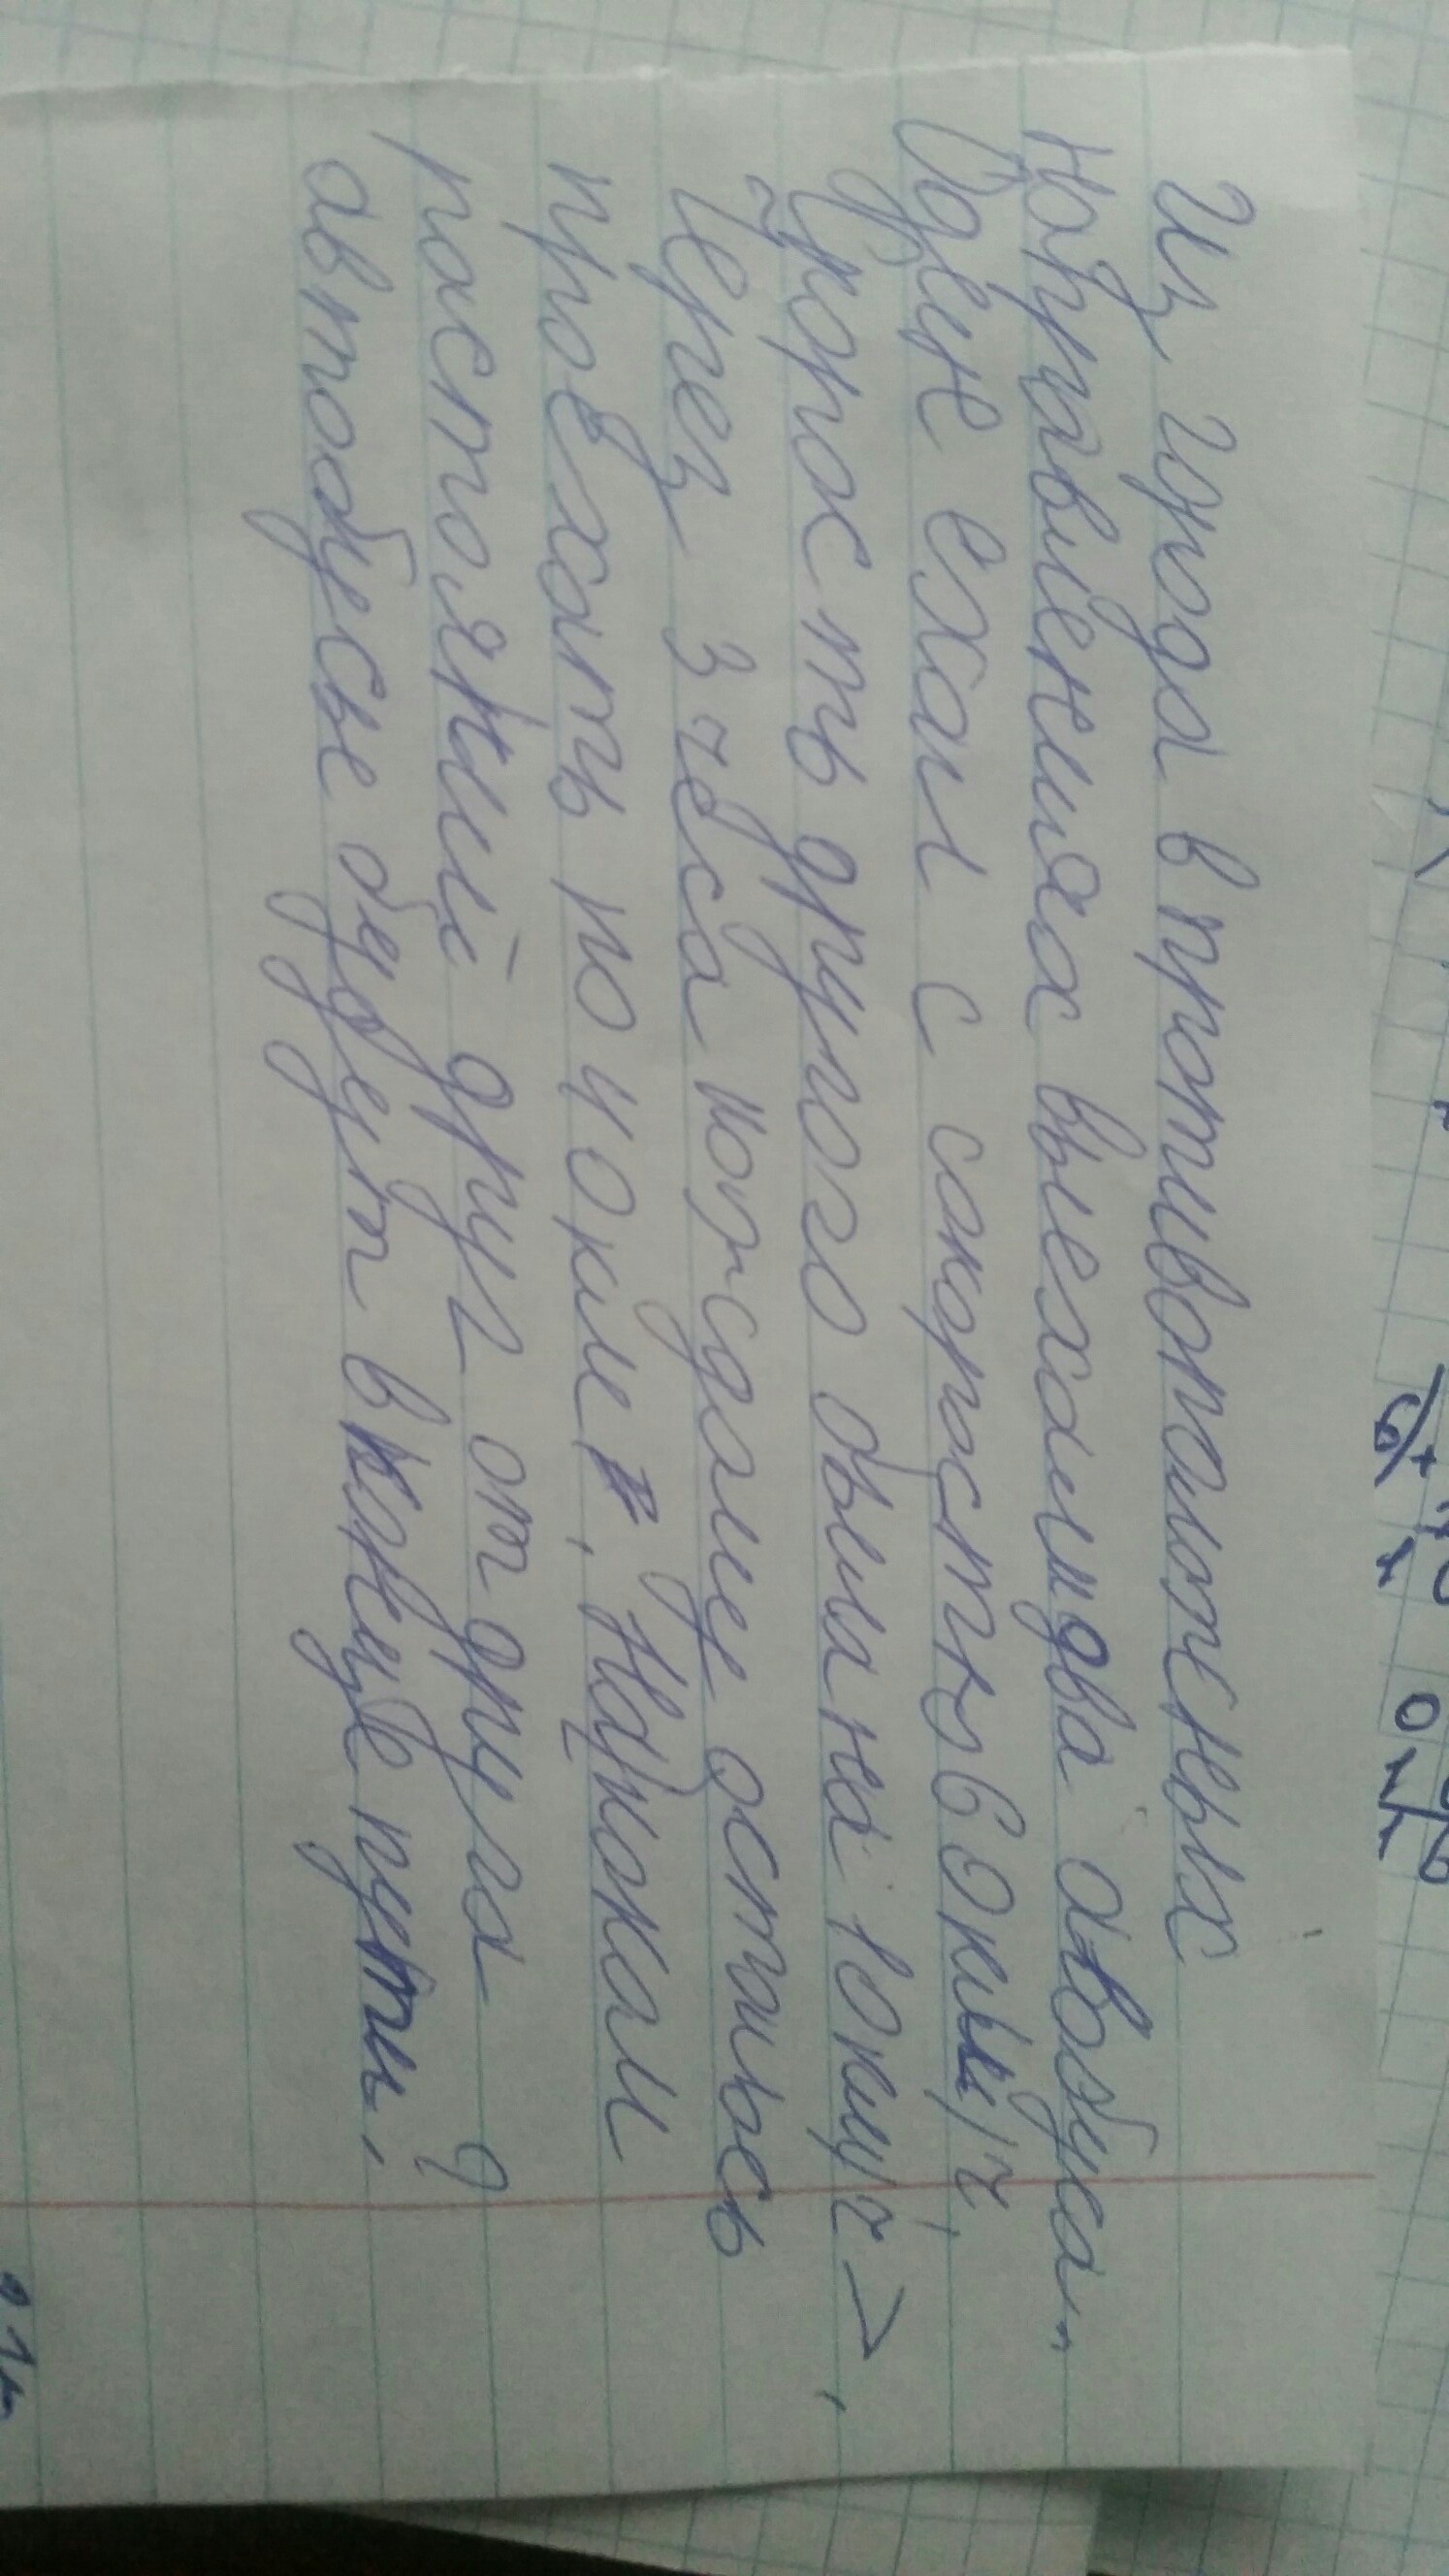 Из города в противополжных
направлениях выехали два автобуса.
Один ехал с скоростью 60 км/ч,
скорость другого была на 10 км/ч >,
Через 3 часа каждому осталось
проехать по 40 км. На каком
растоянии друг от друга
автобусы будут в конце пути?